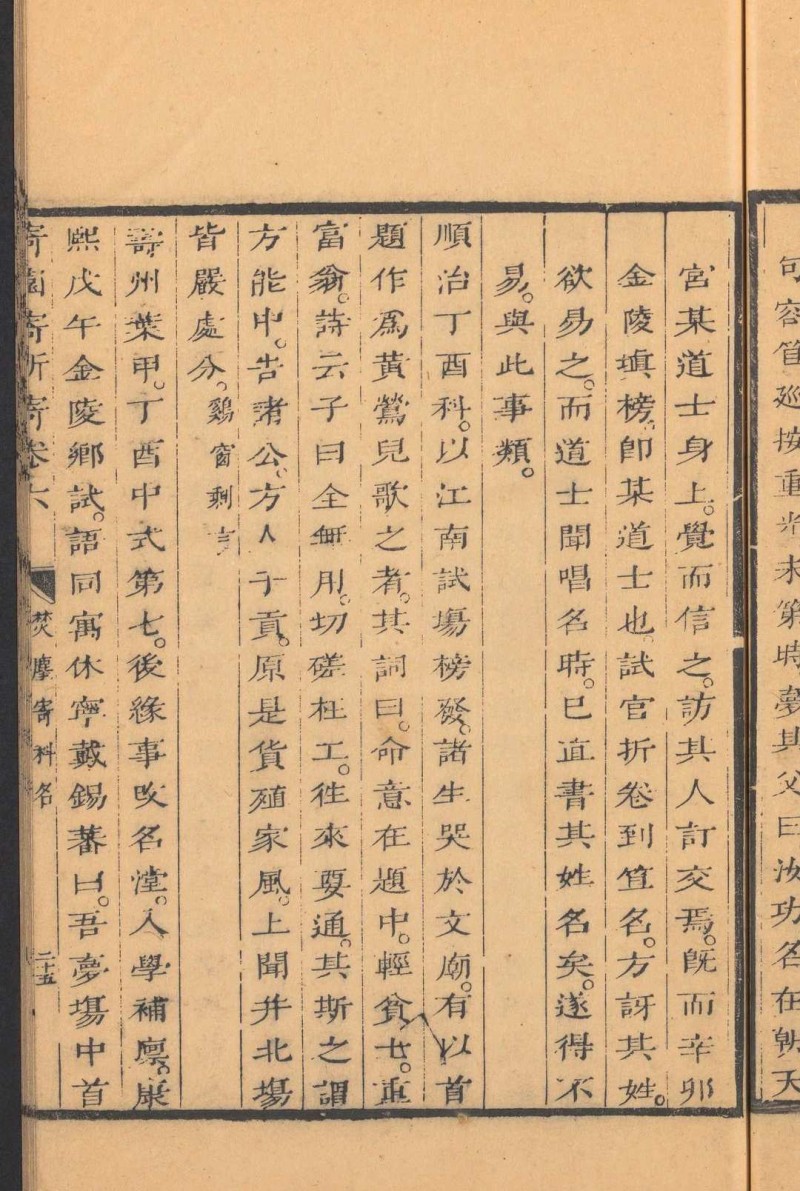 句容笪巡按重光未第時夢其父曰汝功名在朝天
宮某道士身上覺而信之訪其人訂交焉旣而辛卯
金陵塡榜卽某道士也試官折卷到笪名方訝其姓
欲易之而道士聞唱名時已直書其姓名矣遂得不
易與此事類
順治丁酉科以江南試場榜發諸生哭於文廟有以首
題作爲黃鶯兒歌之者其詞曰命意在題中輕貧士重
富翁詩云子曰全無用切磋枉工往來要通其斯之謂
方能中告諸公方人子貢原是貨殖家風上聞并北場
皆嚴處分鷄窗剩言
壽州葉甲丁酉中式第七後緣事改名瀅入學補廩康
熙戊午金陵鄉試語同寓休寧戴錫蕃曰吾夢場中首
寄園寄所寄卷六 焚麈寄科名 二十五